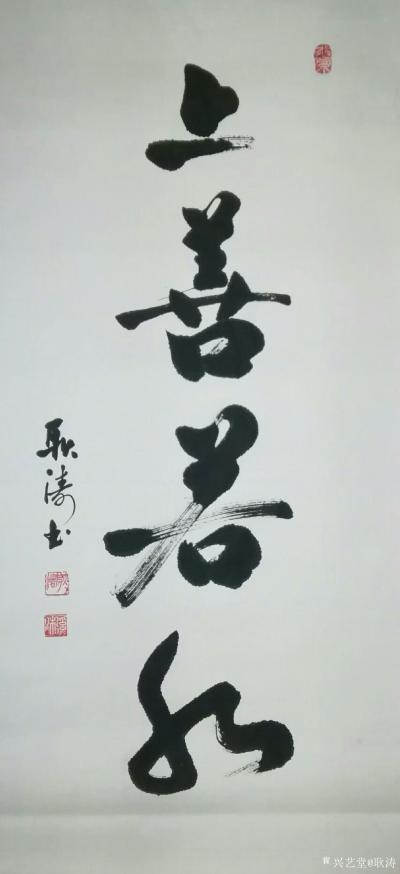 上善若水
耿涛书
兴艺堂@耿涛